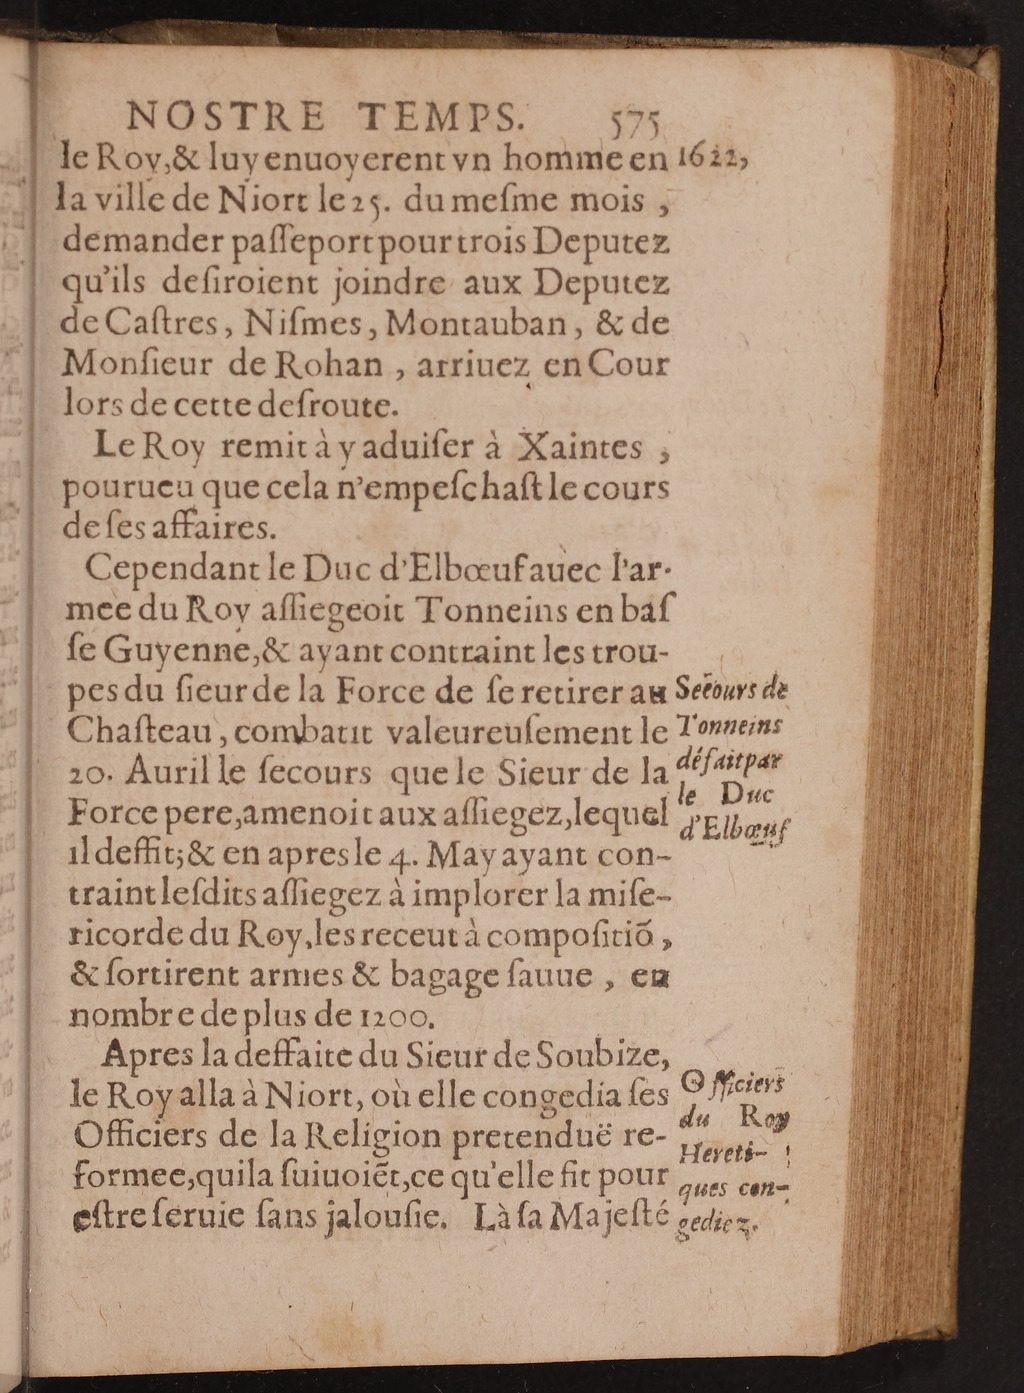 NOSTRE TEMPS. 575
le Roy,& luy enuoyerent vn homme en 1622,
la ville de Niort le 25. du meſme mois ,
demander paſſeport pour trois Deputez
qu'ils deſiroient joindre aux Deputez
de Caſtres, Niſmes, Montauban, & de
Monſieur de Rohan , arriuez en Cour
lors de cette deſroute.
Le Roy remit à y aduiſer à Xaintes ;
pourueu que cela n'empeſchaſt le cours
de ſes affaires.
Cependant le Duc d'Elbœuf auec l'ar-
mee du Roy aſſiegeoit Tonneins en baſ
ſe Guyenne,& ayant contraint les trou-
pes du ſieur de la Force de ſe retirer au
Chaſteau, combatit valeureuſement le
20. Auril le ſecours que le Sieur de la
Force pere,amenoit aux aſſiegez,lequel
il deffit;& en apres le 4. May ayant con-
traint leſdits aſſiegez à implorer la miſe-
ricorde du Roy,les receut à compoſitiõ,
& ſortirent armes & bagage ſauue , en
nombre de plus de 1200.
Secours de
Tonneins
défait par
le Duc
d'Elbœuf
Apres la deffaite du Sieur de Soubize,
le Roy alla à Niort, où elle congedia ſes
Officiers de la Religion pretenduë re-
formee,qui la ſuiuoiẽt,ce qu'elle fit pour
eſtre ſeruie ſans jalouſie. Là ſa Majeſté
Officiers
du Roy
Hereti-
ques con-
gediez.